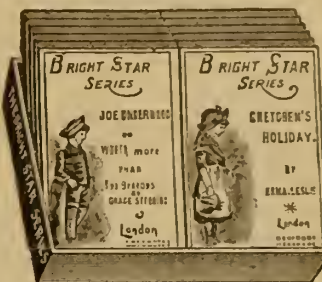 THE BRIGHT STAR SERIES
BRIGHT STAR
SERIES
JOE UNDERWOOD
OR
WORTH more
THAN
BY
GRACE STEBBING
London
BRIGHT STAR
SERIES
GRETCHEN'S
HOLIDAY.
BY
EMMA LESLIE
London